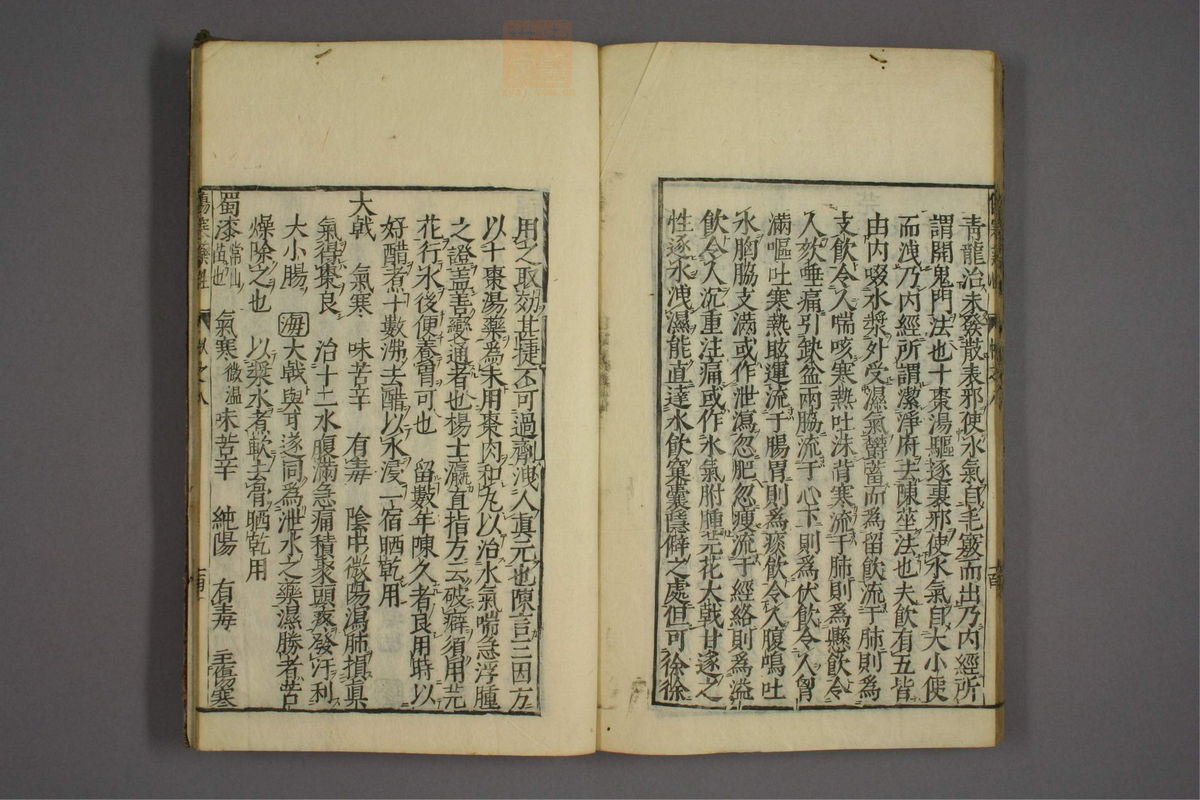 青龍治未發散表邪使水氣自毛竅而出乃内經所
謂開鬼門法也十棗湯驅逐裏邪使水氣自大小便
而洩乃内經所謂潔淨府去陳莝法也夫飲有五皆
由内啜水漿外受濕氣鬱蓄而爲留飲流于肺則爲
支飲令人喘咳寒熱吐沫背寒流于肺則爲懸飲令
人欬唾痛引缺盆兩脇流于心下則爲伏飲令人胷
滿嘔吐寒熱眩運流于腸胃則爲痰飲令人腹鳴吐
水胸脇支滿或作泄瀉忽肥忽瘦流于經絡則爲溢
飲令人沉重注痛或作水氣胕腫芫花大戟甘遂之
性逐水洩濕能直達水飲窠囊隱僻之處但可徐徐
用之取効甚捷不可過劑洩人眞元也陳言三因方
以十棗湯藥爲末用棗肉和丸以治水氣喘急浮腫
之證蓋善變通者也楊士瀛直指方云破癖須用芫
花行水後便養胃可也 留數年陳久者良用時以
好醋煮十數沸去醋以水浸一宿晒乾用
大戟 氣寒 味苦辛 有毒 陰中微陽瀉肺損眞
氣得棗良 治十二水腹滿急痛積聚頭疼發汗利
大小腸 海 大戟與甘遂同爲泄水之藥濕勝者苦
燥除之也 以漿水煮軟去骨晒乾用
蜀漆 常山苗也 氣寒 微温 味苦辛 純陽 有毒 主瘍寒